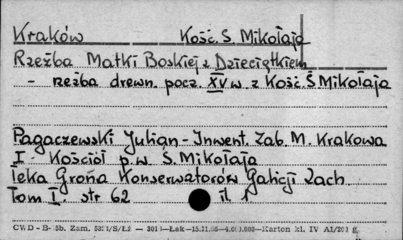 Kraków Kość. S. Mikołaja
Rzeźba Matki Boskiej z Dzieciątkiem
- rzeźba drewn. pocz. XV w. z Kość. S Mikołaja
Pagaczewski Julian - Inwent. Zab. M. Krakowa
I. Kościół p.w. S. Mikołaja
Teka Grona Konserwatorów Galicji Zach.
Tom I. str 62 il. 1
CWD - B- 5b. Zam.